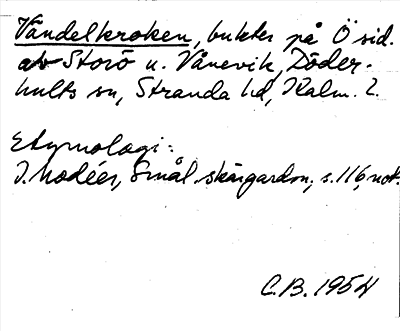 Vändelkroken, bukter på Ö sid.
av Storö u. Vånevik, Döder-
hults sn, Stranda hd, Kalm. l.
Etymologi:
I. Modéer, Smål. skärgårdsn., s. 116, not.
C.B. 1954